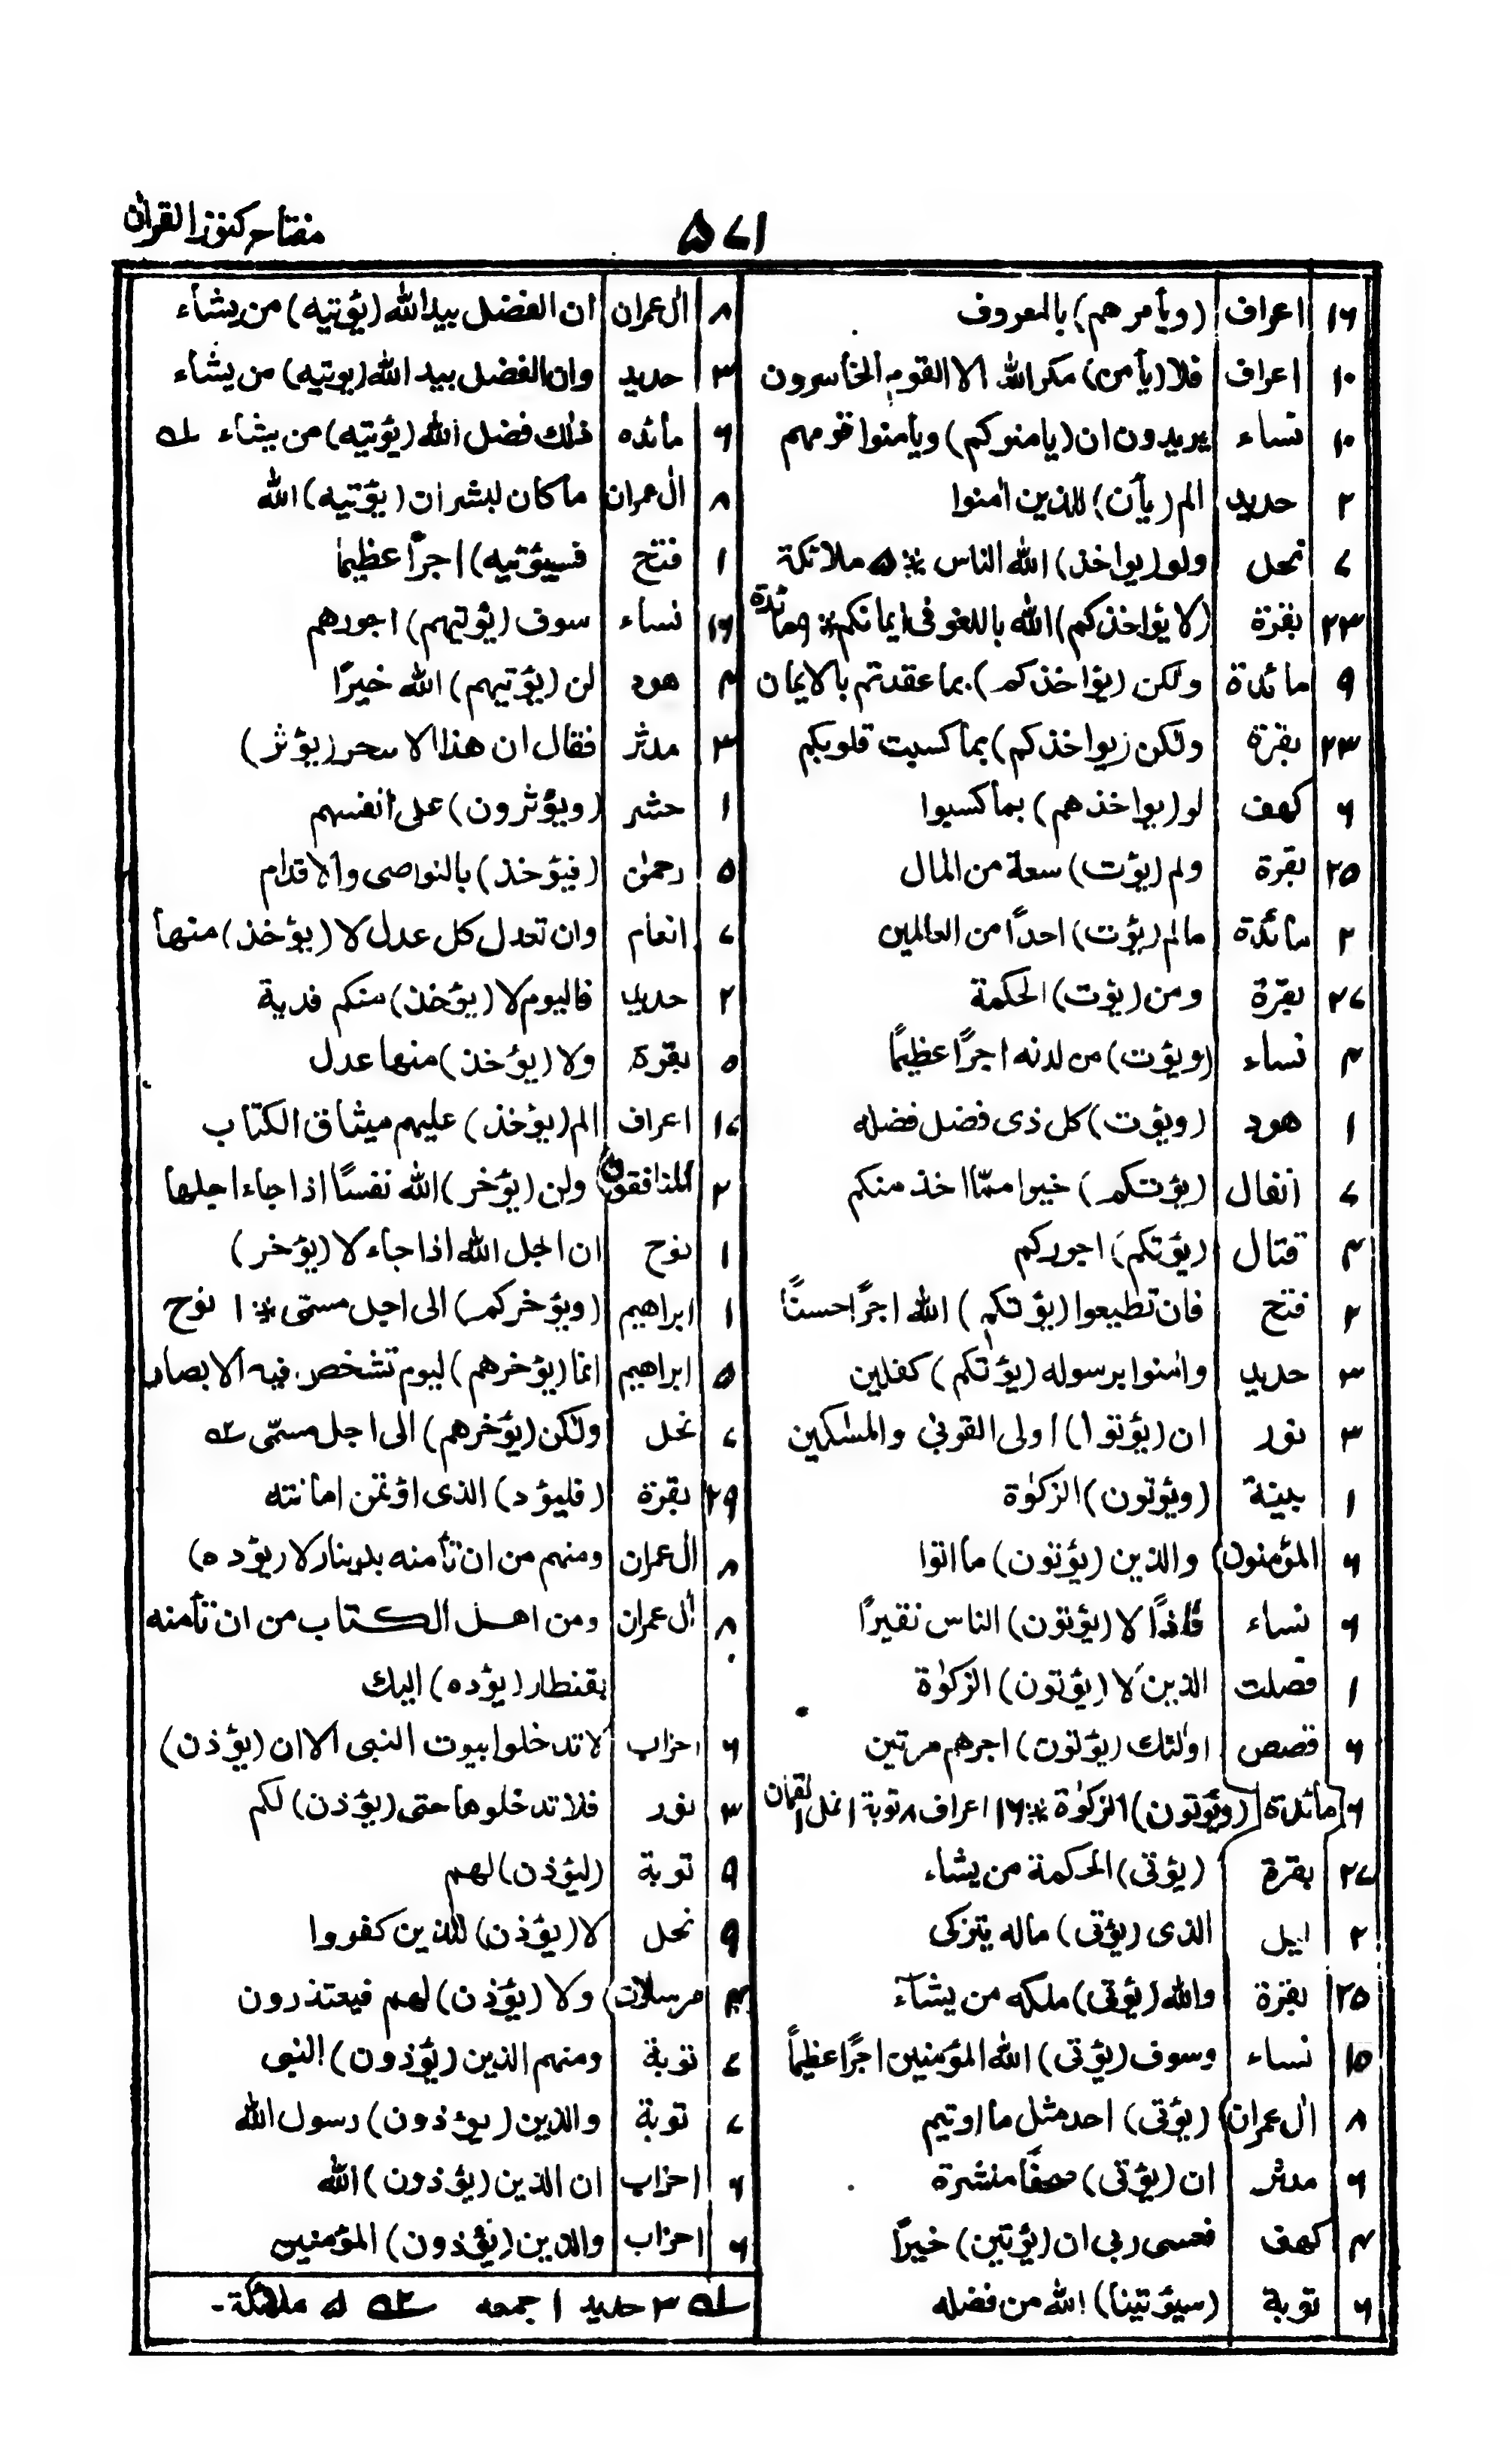 مفتاح کنوز القرآن
۵۷۱
۱۶ اعراف (ویأمرهم) بالمعروف
۱۰ اعراف فلا (یأمن) مکر الله الا القوم الخاسرون
۱۰ نساء یریدون ان (یامنوکم) ویأمنوا قومهم
۲ حدید الم (یأن) للذین اٰمنوا
۷ نحل ولو (یواخذ) الله الناس ※ ۵ ملائکة
۲۳ بقرة (لا یؤاخذکم) الله باللغو فی ایمانکم ※ ۹ مائدة
۹ مائدة ولکن (یؤاخذکم) بما عقدتم بالایمان
۲۳ بقرة ولٰکن (یواخذکم) بما کسبت قلوبکم
۶ کهف لو (یواخذهم) بما کسبوا
۲۵ بقرة ولم (یؤت) سعة من المال
۲ مائدة مالم (یؤت) احدًا من العالمین
۲۷ بقرة ومن (یؤت) الحکمة
۴ نساء (ویؤت) من لدنه اجرًا عظیمًا
۱ هود (ویؤت) کل ذی فضل فضله
۷ انفال (یؤتکم) خیرا ممّا اخذ منکم
۴ قتال (یؤتکم) اجورکم
۲ فتح فان تطیعوا (یؤتکم) الله اجرًا حسنًا
۳ حدید واٰمنوا برسوله (یؤتکم) کفلین
۳ نور ان (یؤتوا) اولی القربیٰ والمسٰکین
۱ بینة (ویؤتون) الزکوٰة
۶ المؤمنون والذین (یؤتون) ما اتوا
۶ نساء فاذًا لا (یؤتون) الناس نقیرًا
۱ فصلت الذین لا (یؤتون) الزکوٰة
۶ قصص اولٰئك (یؤتون) اجرهم مرتین
۶ مائدة (ویؤتون) الزکوٰة ※ ۱۶ اعراف ۸ توبة ۱ نمل ۱ لقمان
۲۷ بقرة (یؤتی) الحکمة من یشاء
۲ لیل الذی (یؤتی) ماله یتزکی
۲۵ بقرة والله (یؤتی) ملکه من یشآء
۱۵ نساء وسوف (یؤتی) الله المؤمنین اجرًا عظیمًا
۸ اٰل عمران (یؤتی) احد مثل ما اوتیم
۶ مدثر ان (یؤتی) صحفًا منشرة
۴ کهف فعسی ربی ان (یؤتین) خیرًا
۶ توبة (سیؤتینا) الله من فضله
۸ اٰل عمران ان الفضل بید الله (یؤتیه) من یشآء
۳ حدید وان الفضل بید الله (یوتیه) من یشاء
۶ مائده ذلك فضل الله (یؤتیه) من یشاء ۱؎
۸ اٰل عمران ما کان لبشر ان (یؤتیه) الله
۱ فتح فسیؤتیه) اجرًا عظیمًا
۱۶ نساء سوف (یؤتیهم) اجورهم
۴ هود لن (یؤتیهم) الله خیرًا
۳ مدثر فقال ان هذا الا سحر (یؤثر)
۱ حشر (ویؤثرون) علی انفسهم
۵ رحمٰن (فیؤخذ) بالنواصی والاقدام
۷ انعام وان تعدل کل عدل لا (یؤخذ) منها
۲ حدید فالیوم لا (یؤخذ) منکم فدیة
۵ بقرة ولا (یؤخذ) منها عدل
۱۷ اعراف الم (یؤخذ) علیهم میثاق الکتاب
۲ المنافقون ولن (یؤخر) الله نفسًا اذا جاء اجلها
۱ نوح ان اجل الله اذا جاء لا (یؤخر)
۱ ابراهیم (ویؤخرکم) الی اجل مسمّی ※ ۱ نوح
۵ ابراهیم انما (یؤخرهم) لیوم تشخص فیه الابصار
۷ نحل ولٰکن (یؤخرهم) الی اجل مسمّی ۲؎
۲۹ بقرة (فلیؤد) الذی اؤتمن امانته
۸ اٰل عمران ومنهم من ان تأمنه بدینار لا (یؤده)
۸ اٰل عمران ومن اهل الکتاب من ان تأمنه
بقنطار (یؤده) الیك
۶ احزاب لا تدخلوا بیوت النبی الا ان (یؤذن)
۳ نور فلا تدخلوها حتی (یؤذن) لکم
۹ توبة (لیؤذن) لهم
۹ نحل لا (یؤذن) للذین کفروا
مرسلات ولا (یؤذن) لهم فیعتذرون
۷ توبة ومنهم الذین (یؤذون) النبی
۷ توبة والذین (یوءذون) رسول الله
۶ احزاب ان الذین (یؤذون) الله
۶ احزاب والذین (یؤذون) المؤمنین
۱؎ ۳ حدید ۱ جمعه ۲؎ ۵ ملائکة۔